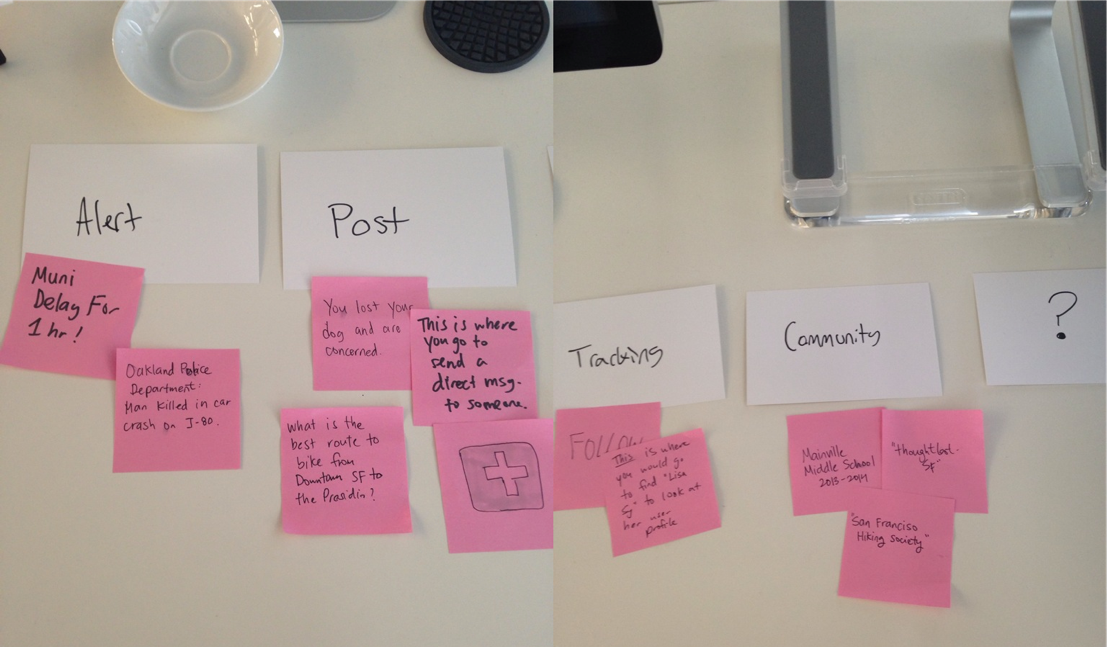 Alert
Muni
Delay For
1 hr!
Oakland Police
Department:
Man killed in car
crash on I-80.
Post
You lost your
dog and are
concerned.
This is where
you go to
send a
direct msg.
to someone.
What is the
best route to
bike from
Downtown SF to
the Presidio?
Tracking
Follow
This is where
you would go
to find "Lisa
Sg" to look at
her user
profile
Community
Mainville
Middle School
2013-2014
"thoughtbot-
SF"
"San Franciso
Hiking Society"
?